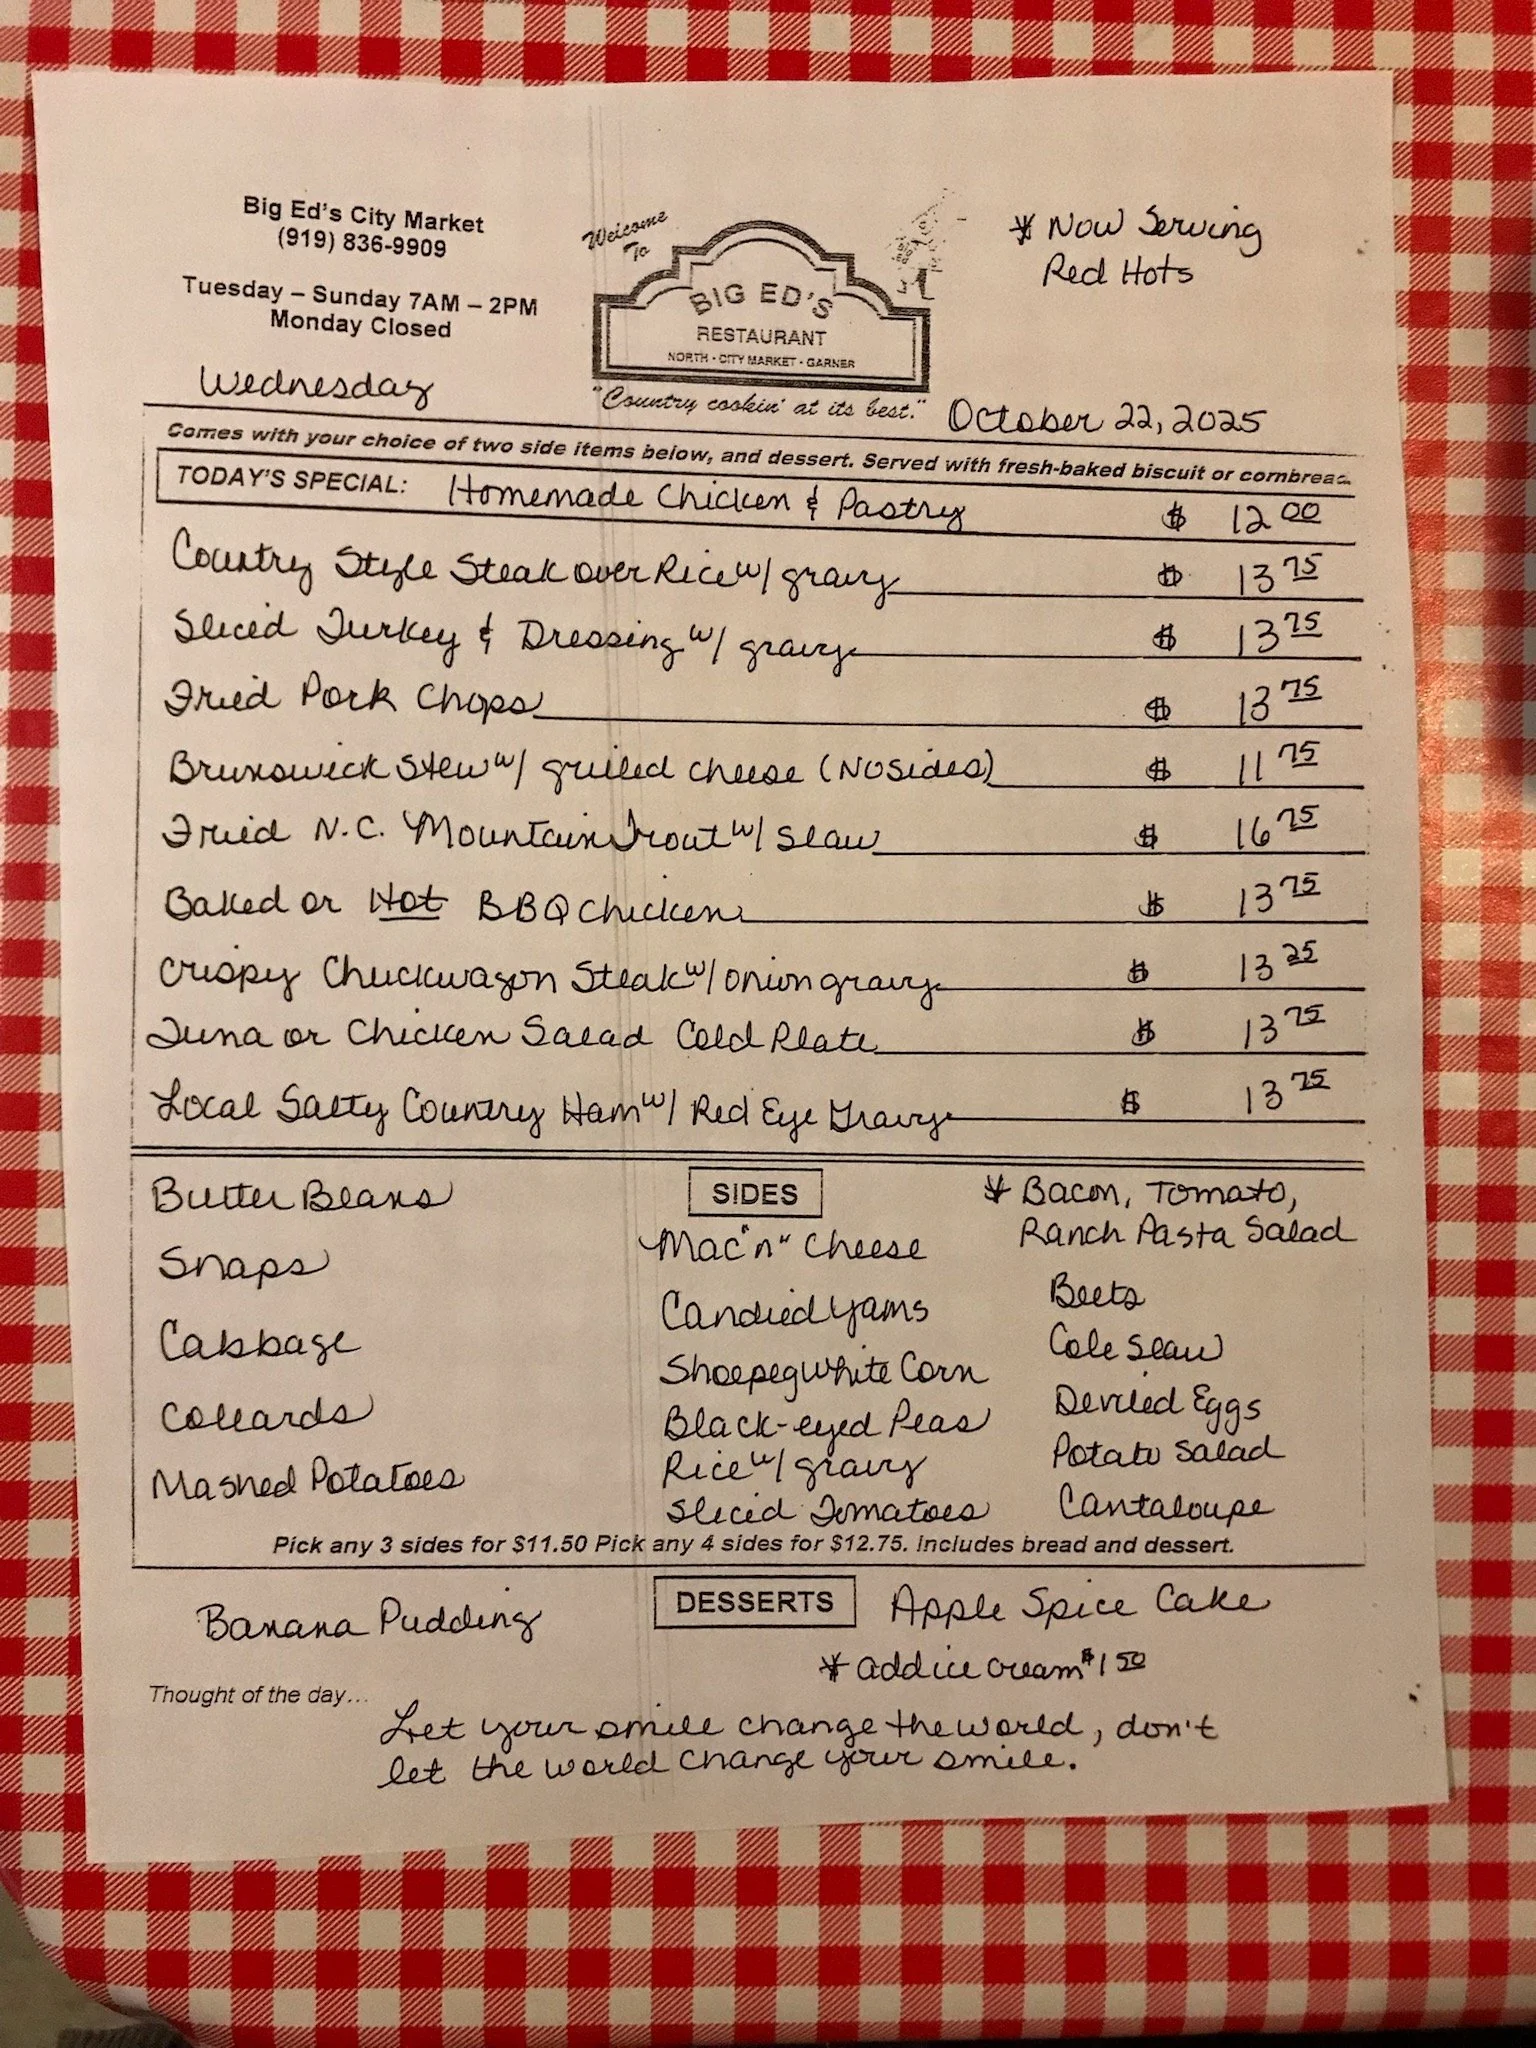 Big Ed's City Market
(919) 836-9909
Tuesday – Sunday 7AM – 2PM
Monday Closed
Wednesday
Welcome
To
BIG ED'S
RESTAURANT
NORTH - CITY MARKET - GARNER
"Country cookin' at its best."
* Now Serving
Red Hots
October 22, 2025
Comes with your choice of two side items below, and dessert. Served with fresh-baked biscuit or cornbread.
TODAY'S SPECIAL: Homemade Chicken & Pastry $ 12 00
Country Style Steak over Rice w/ gravy $ 13 75
Sliced Turkey & Dressing w/ gravy $ 13 75
Fried Pork Chops $ 13 75
Brunswick Stew w/ grilled cheese (No sides) $ 11 75
Fried N.C. Mountain Trout w/ slaw $ 16 75
Baked or Hot BBQ Chicken $ 13 75
Crispy Chuckwagon Steak w/ onion gravy $ 13 25
Tuna or Chicken Salad Cold Plate $ 13 75
Local Salty Country Ham w/ Red Eye Gravy $ 13 75
SIDES
Butter Beans
Snaps
Cabbage
Collards
Mashed Potatoes
Mac "n" Cheese
Candied Yams
Shoepeg White Corn
Black-eyed Peas
Rice w/ gravy
Sliced Tomatoes
* Bacon, Tomato,
Ranch Pasta Salad
Beets
Cole Slaw
Deviled Eggs
Potato Salad
Cantaloupe
Pick any 3 sides for $11.50 Pick any 4 sides for $12.75. Includes bread and dessert.
DESSERTS
Banana Pudding
Apple Spice Cake
* add ice cream $1 50
Thought of the day...
Let your smile change the world, don't
let the world change your smile.